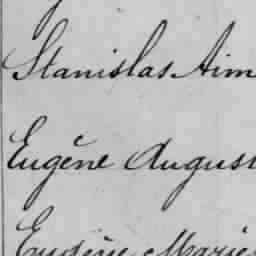 Stanislas Aim
Eugène August
Eugène Marie